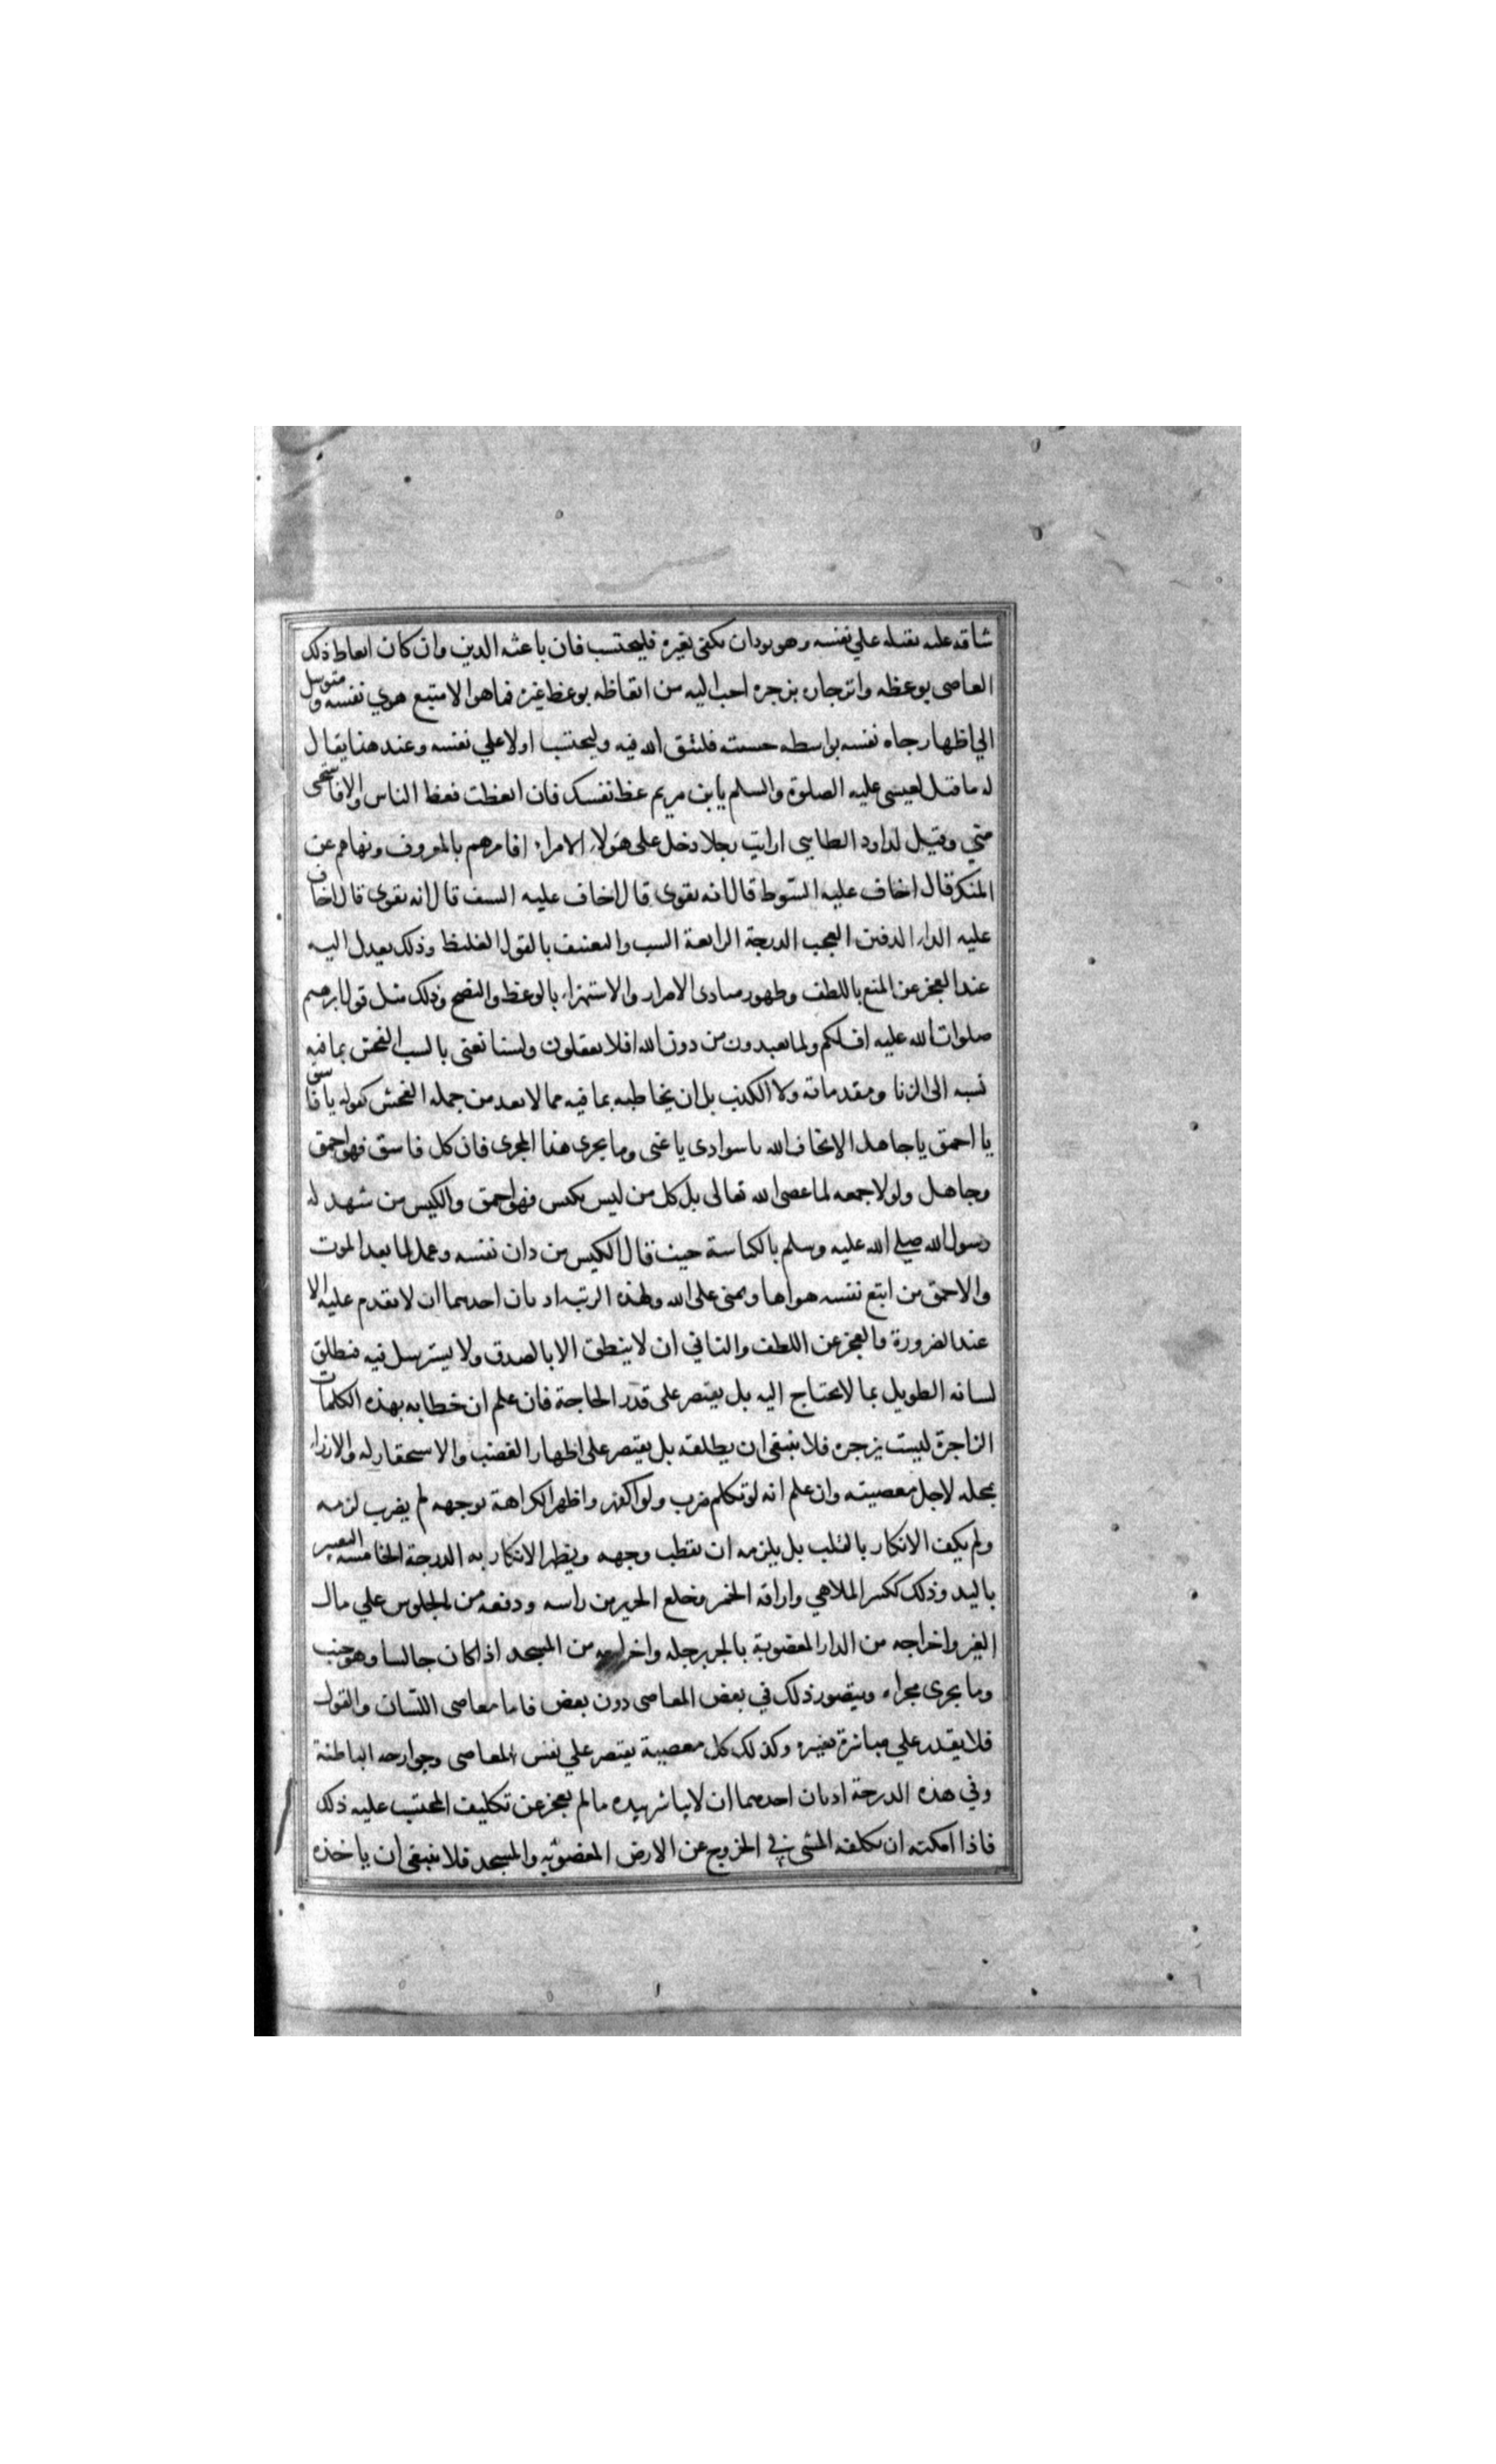 شاقه عليه ثقيله علي نفسه وهو يود ان يكفى بغيره فليحتسب فان باعثه الدين وان كان اتعاظ ذلك
العاصى بوعظه وانزجاره بزجره احب اليه من اتعاظه بوعظ غيره فما هو الا متبع هوي نفسه ومتوسل
الي اظهار جاه نفسه بواسطه حسبته فليتق الله فيه وليحتسب اولا علي نفسه وعند هذا يقال
له ما قيل لعيسى عليه الصلوة والسلم يابن مريم عظ نفسك فان اتعظت فعظ الناس والا فاستحى
مني وقيل لداود الطايى ارايت رجلا دخل على هولاء الامراء فامرهم بالمعروف ونهاهم عن
المنكر قال اخاف عليه السوط قال انه يقوى قال اخاف عليه السيف قال انه يقوى قال اخاف
عليه الداء الدفين العجب الدرجة الرابعة السب والتعنيف بالقول الغليظ وذلك يعدل اليه
عند العجز عن المنع باللطف وظهور مبادى الاصرار والاستهزاء بالوعظ والنصح وذلك مثل قول ابرهيم
صلوات الله عليه اف لكم ولما تعبدون من دون الله افلا تعقلون ولسنا نعنى بالسب الفحش بما فيه
نسبه الى الزنا ومقدماته ولا الكذب بل ان يخاطبه بما فيه مما لا يعد من جمله الفحش كقوله يا فاسق
يا احمق يا جاهل الا تخاف الله يا سوادى يا غبى وما يجرى هذا المجرى فان كل فاسق فهو احمق
وجاهل ولولا حمقه لما عصى الله تعالى بل كل من ليس بكيس فهو احمق والكيس من شهد له
رسول الله صلي الله عليه وسلم بالكياسة حيث قال الكيس من دان نفسه وعمل لما بعد الموت
والاحمق من اتبع نفسه هواها وتمنى على الله ولهذه الرتبه ادبان احدهما ان لا يقدم عليه الا
عند الضرورة والعجز عن اللطف والثاني ان لا ينطق الا بالصدق ولا يسترسل فيه فيطلق
لسانه الطويل بما لا يحتاج اليه بل يقتصر على قدر الحاجة فان علم ان خطابه بهذه الكلمات
الزاجرة ليست يزجره فلا ينبغى ان يطلقه بل يقتصر على اظهار الغضب والاستحقار له والازراء
بمحله لاجل معصيته وان علم انه لو تكلم ضرب ولو اكفهر واظهر الكراهة بوجهه لم يضرب لزمه
ولم يكف الانكار بالقلب بل يلزمه ان يقطب وجهه ويظهر الانكار به الدرجة الخامسه التغيير
باليد وذلك ككسر الملاهي واراقة الخمر وخلع الحرير من راسه ودفعه من الجلوس علي مال
الغير واخراجه من الدار المغصوبة بالجر برجله واخراجه من المسجد اذا كان جالسا وهو جنب
وما يجرى مجراه ويتصور ذلك في بعض المعاصى دون بعض فاما معاصى اللسان والقول
فلا يقدر علي مباشرة تغييره وكذلك كل معصية يقتصر علي نفس المعاصى وجوارحه الباطنة
وفي هذه الدرجة ادبان احدهما ان لا يباشر بيده ما لم يعجز عن تكليف المحتسب عليه ذلك
فاذا امكنه ان يكلفه المشى في الخروج عن الارض المغصوبه والمسجد فلا ينبغى ان ياخذه